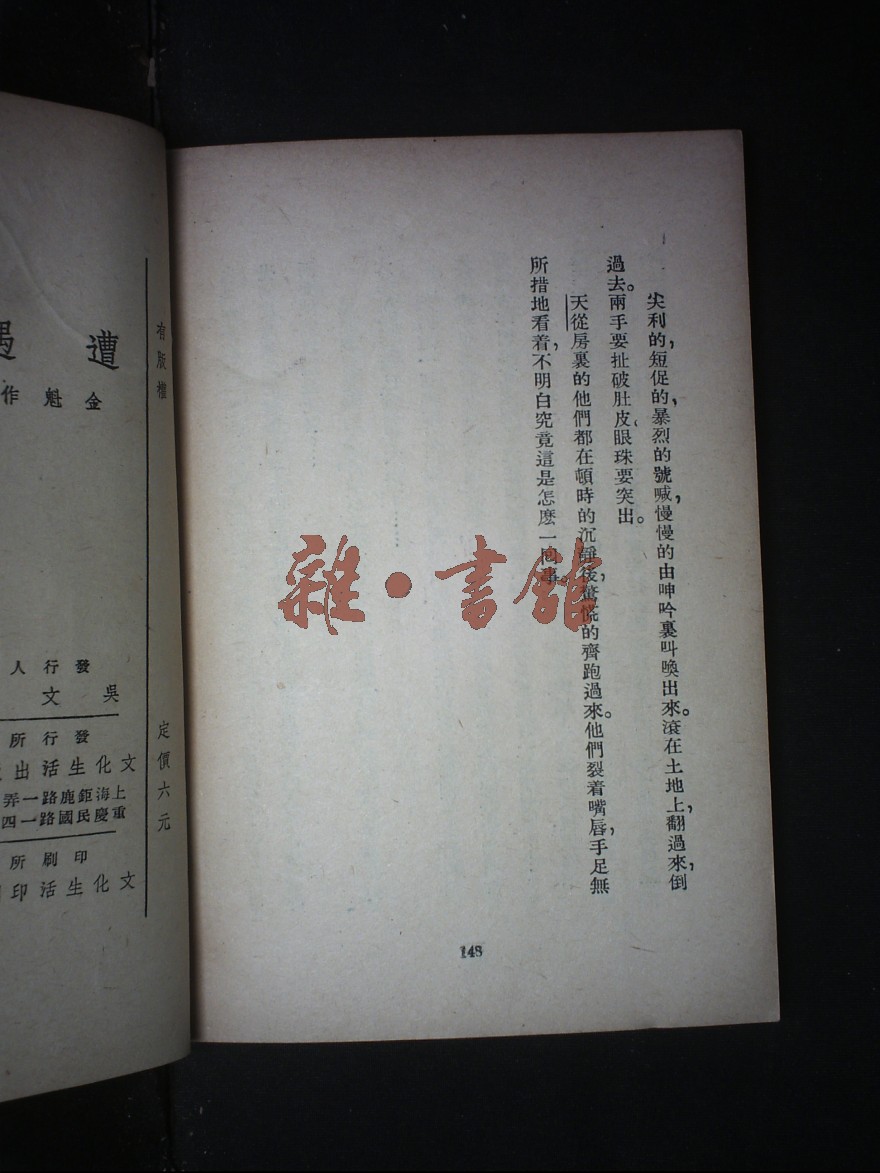 尖利的，短促的，暴烈的號喊，慢慢的由呻吟裏叫喚出來。滾在土地上，翻過來，倒
過去。兩手要扯破肚皮、眼珠要突出。
天從房裏的他們都在頓時的沉靜後，驚慌的齊跑過來。他們裂着嘴唇，手足無
所措地看着，不明白究竟這是怎麼一回事。
148
雜·書館
有版權
定價六元
遭遇
金魁作
發行人
吳文
發行所
文化生活出
上海鉅鹿路一弄
重慶民國路一四
印刷所
文化生活印